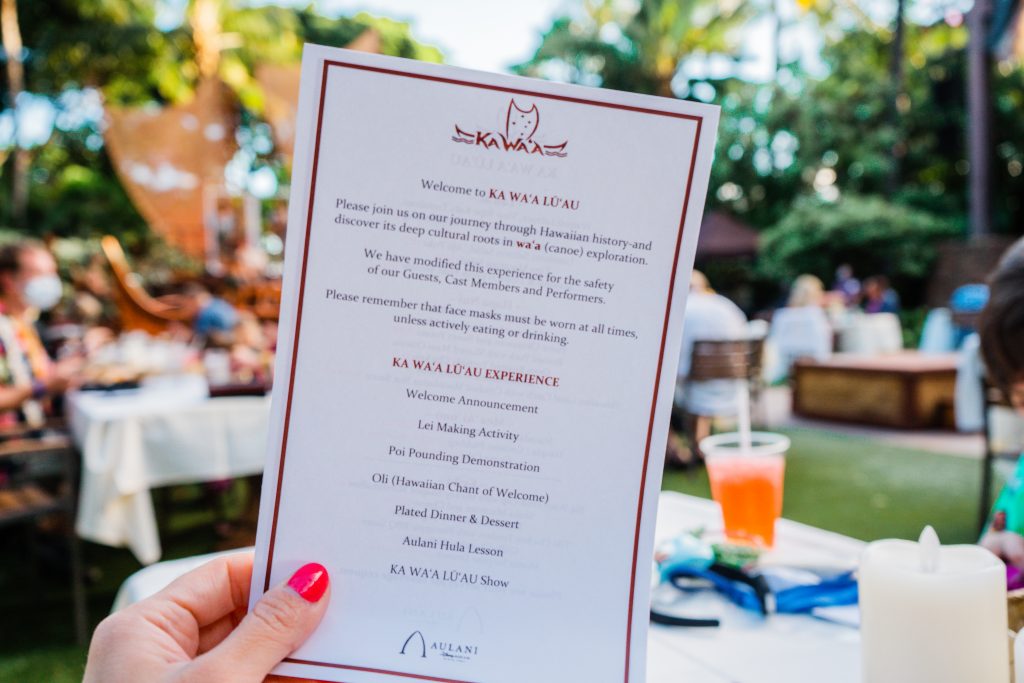 KA WA'A
Welcome to KA WA'A LŪ'AU
Please join us on our journey through Hawaiian history-and
discover its deep cultural roots in wa'a (canoe) exploration.
We have modified this experience for the safety
of our Guests, Cast Members and Performers.
Please remember that face masks must be worn at all times,
unless actively eating or drinking.
KA WA'A LŪ'AU EXPERIENCE
Welcome Announcement
Lei Making Activity
Poi Pounding Demonstration
Oli (Hawaiian Chant of Welcome)
Plated Dinner & Dessert
Aulani Hula Lesson
KA WA'A LŪ'AU Show
AULANI